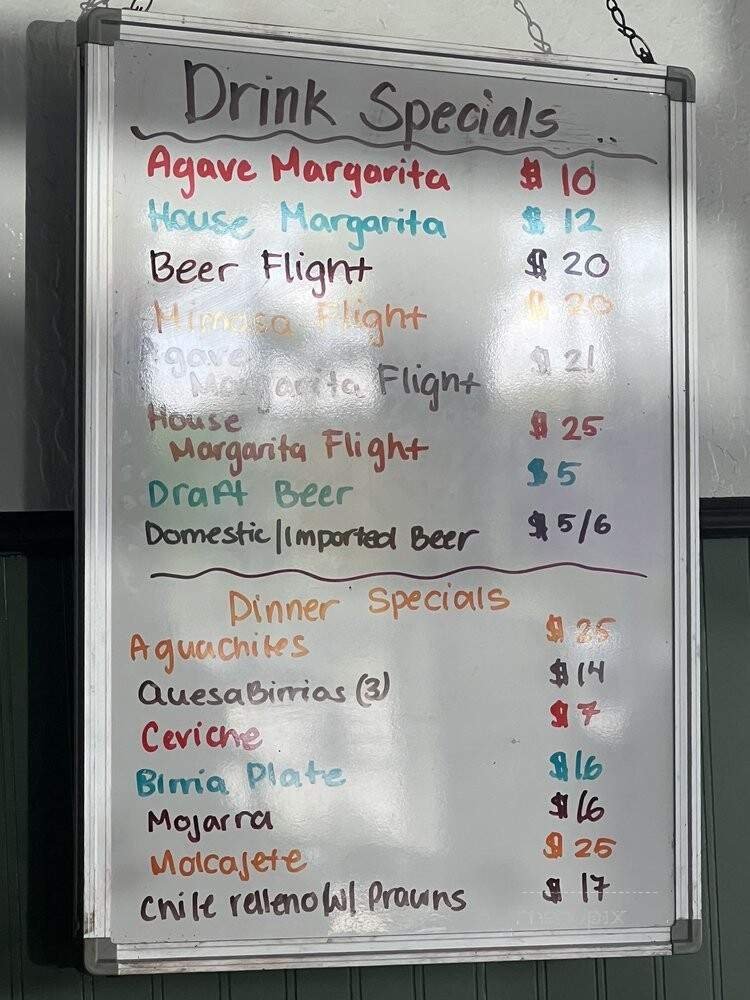 Drink Specials ..
Agave Margarita $ 10
House Margarita $ 12
Beer Flight $ 20
Mimosa Flight $ 20
Agave $ 21
Margarita Flight
House $ 25
Margarita Flight
Draft Beer $ 5
Domestic/Imported Beer $ 5/6
Dinner Specials
Aguachiles $ 25
QuesaBirrias (3) $ 14
Ceviche $ 7
Birria Plate $ 16
Mojarra $ 16
Molcajete $ 25
Chile relleno w/ Prawns $ 17